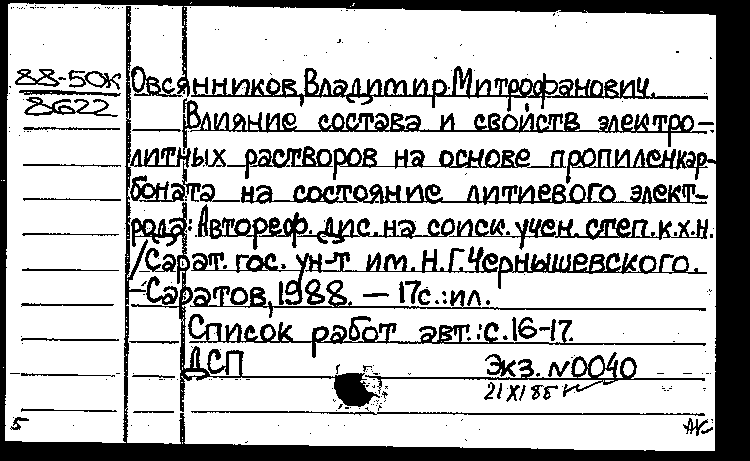 88-50К Овсянников, Владимир Митрофанович.
8622 Влияние состава и свойств электро-
литных растворов на основе пропиленкар-
боната на состояние литиевого элект-
рода: Автореф. дис. на соиск. учен. степ. к.х.н.
/Сарат. гос. ун-т им. Н.Г.Чернышевского.
-Саратов, 1988. — 17с.:ил.
Список работ авт.: с.16-17.
ДСП Экз. №0040
21 XI 88
5